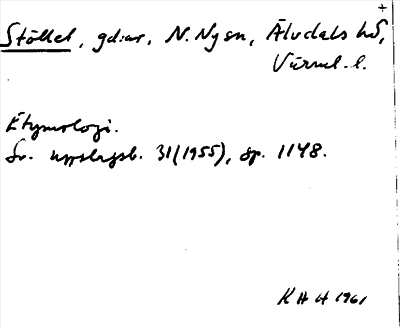 +
Stöllet, gd:ar, N. Ny sn, Älvdals hd,
Värml. l.
Etymologi.
Sv. uppslagsb. 31(1955), sp. 1148.
KHH 1961